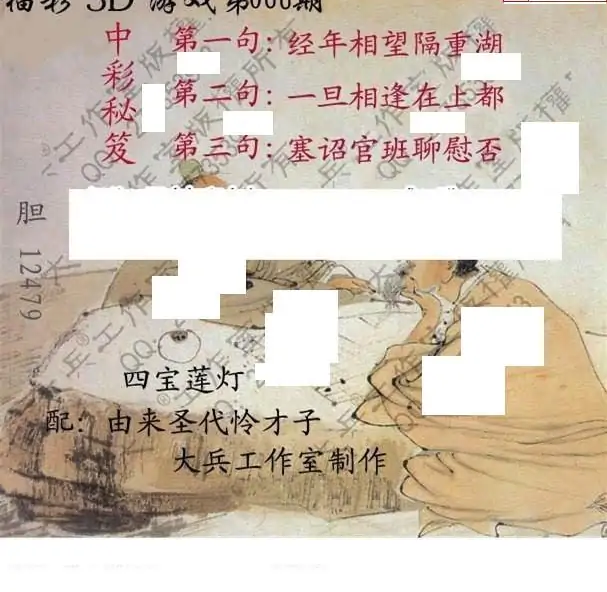 福彩 3D 游戏第000期
中彩秘笈
第一句：经年相望隔重湖
第二句：一旦相逢在上都
第三句：塞诏官班聊慰否
胆 12479
四宝莲灯
配：由来圣代怜才子
大兵工作室制作